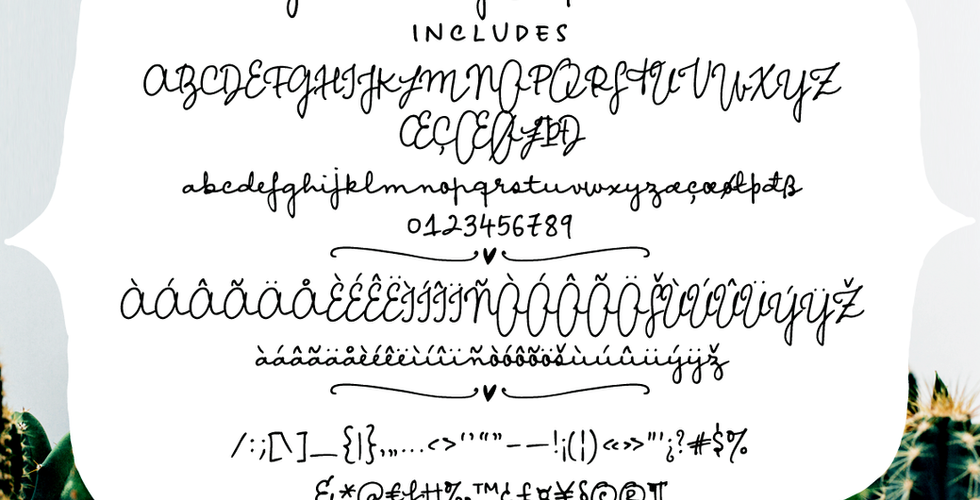 INCLUDES
ABCDEFGHIJKLMNOPQRSTUVWXYZ
ÆÇŒØŁÞĐ
abcdefghijklmnopqrstuvwxyzæçœøłþđß
0123456789
ÀÁÂÃÄÅÈÉÊËÌÍÎÏÑÒÓÔÕÖŠÙÚÛÜÝŸŽ
àáâãäåèéêëìíîïñòóôõöšùúûüýÿž
/:;[\]_{|}‚„,...<>‘’“”–—!¡(¦)«»"'¿?#$%
&*@